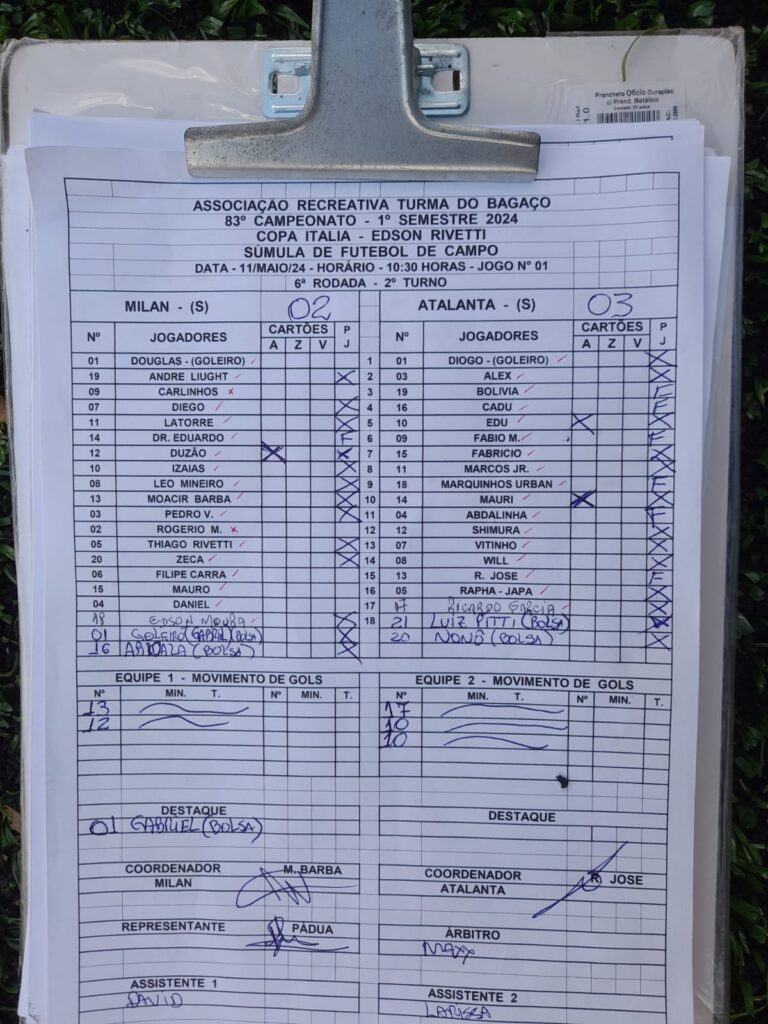 Prancheta Ofício Duraplac
c/ Prend. Metálico
ASSOCIAÇÃO RECREATIVA TURMA DO BAGAÇO
83º CAMPEONATO - 1º SEMESTRE 2024
COPA ITALIA - EDSON RIVETTI
SÚMULA DE FUTEBOL DE CAMPO
DATA - 11/MAIO/24 - HORÁRIO - 10:30 HORAS - JOGO Nº 01
6ª RODADA - 2º TURNO
MILAN - (S) 02 ATALANTA - (S) 03
Nº JOGADORES CARTÕES P J Nº JOGADORES CARTÕES P J
A Z V A Z V
01 DOUGLAS - (GOLEIRO) 1 01 DIOGO - (GOLEIRO) X
19 ANDRE LIUGHT X 2 03 ALEX X
09 CARLINHOS x 3 19 BOLIVIA F
07 DIEGO X 4 16 CADU F
11 LATORRE X 5 10 EDU X X
14 DR. EDUARDO F 6 09 FABIO M. F
12 DUZÃO X X 7 15 FABRICIO X
10 IZAIAS X 8 11 MARCOS JR. X
08 LEO MINEIRO X 9 18 MARQUINHOS URBAN F
13 MOACIR BARBA X 10 14 MAURI X X
03 PEDRO V. X 11 04 ABDALINHA F
02 ROGERIO M. x 12 12 SHIMURA X
05 THIAGO RIVETTI X 13 07 VITINHO X
20 ZECA X 14 08 WILL X
06 FILIPE CARRA 15 13 R. JOSE F
15 MAURO 16 05 RAPHA - JAPA X
04 DANIEL 17 17 RICARDO GARCIA X
18 EDSON MOURA X 18 21 LUIZ PITTI (BOLSA) X
01 GOLEIRO (GABRIEL) (BOLSA) X 20 NONÔ (BOLSA) X
16 ABDALA (BOLSA) X
EQUIPE 1 - MOVIMENTO DE GOLS EQUIPE 2 - MOVIMENTO DE GOLS
Nº MIN. T. Nº MIN. T. Nº MIN. T. Nº MIN. T.
13 17
12 10
10
DESTAQUE DESTAQUE
01 GABRIEL (BOLSA)
COORDENADOR M. BARBA COORDENADOR R. JOSE
MILAN ATALANTA
REPRESENTANTE PÁDUA ÁRBITRO
MAXX
ASSISTENTE 1 ASSISTENTE 2
DAVID LARISSA